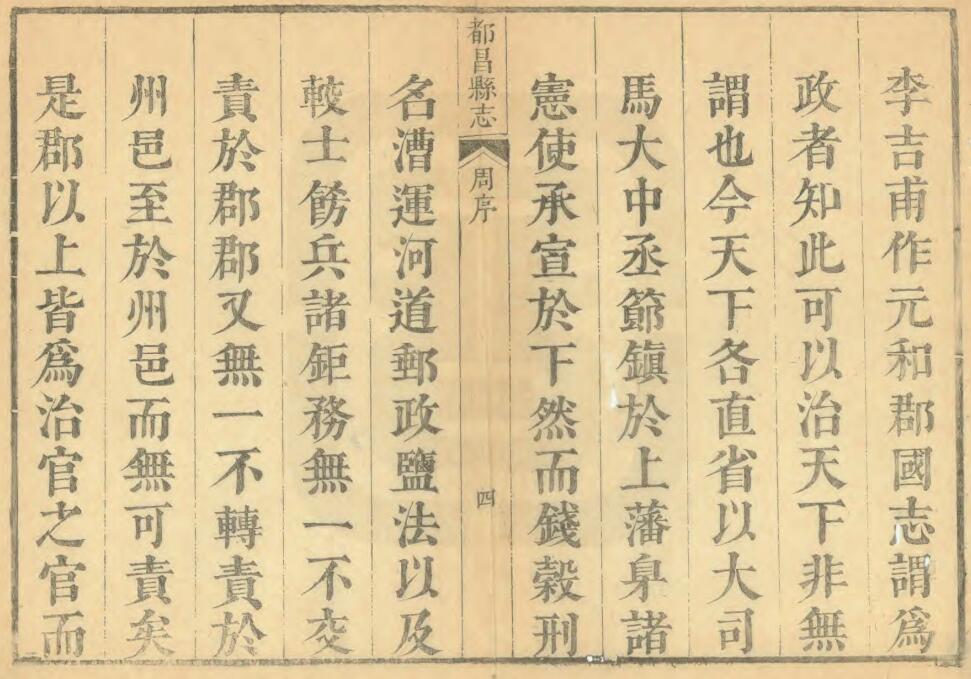 李吉甫作元和郡國志謂爲
政者知此可以治天下非無
謂也今天下各直省以大司
馬大中丞節鎮於上藩臬諸
憲使承宣於下然而錢穀刑
都昌縣志 周序 四
名漕運河道郵政鹽法以及
較士餝兵諸鉅務無一不交
責於郡郡又無一不轉責於
州邑至於州邑而無可責矣
是郡以上皆爲治官之官而